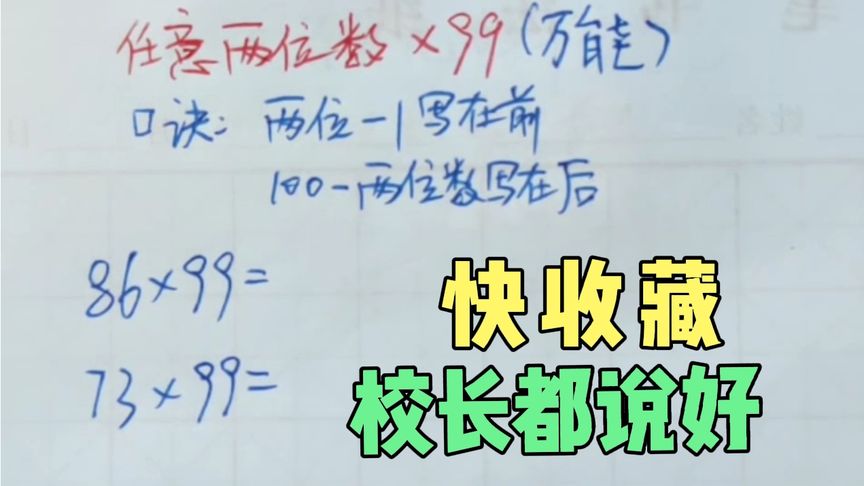 任意两位数×99(万能)
口诀: 两位-1写在前
100-两位数写在后
86×99=
73×99=
快收藏
校长都说好